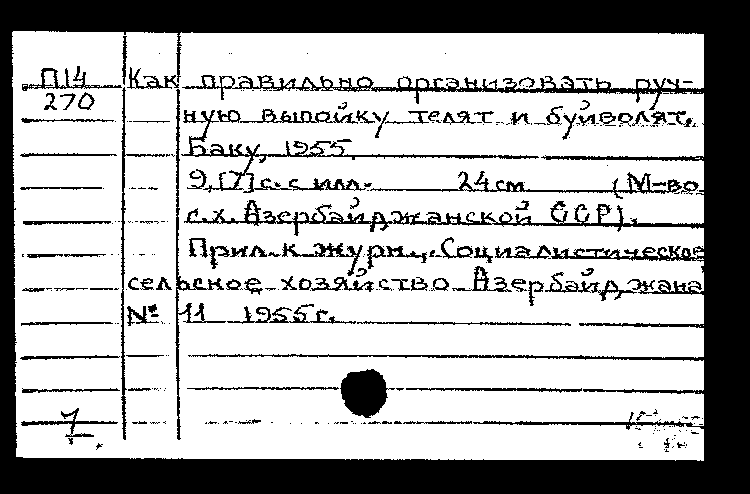 П14 Как правильно организовать руч-
270 ную выпойку телят и буйволят.
Баку, 1955.
9,[7]с. с илл. 24см (М-во
с.х. Азербайджанской ССР).
Прил. к журн. „Социалистическое
сельское хозяйство Азербайджана"
№ 11 1955г.
7